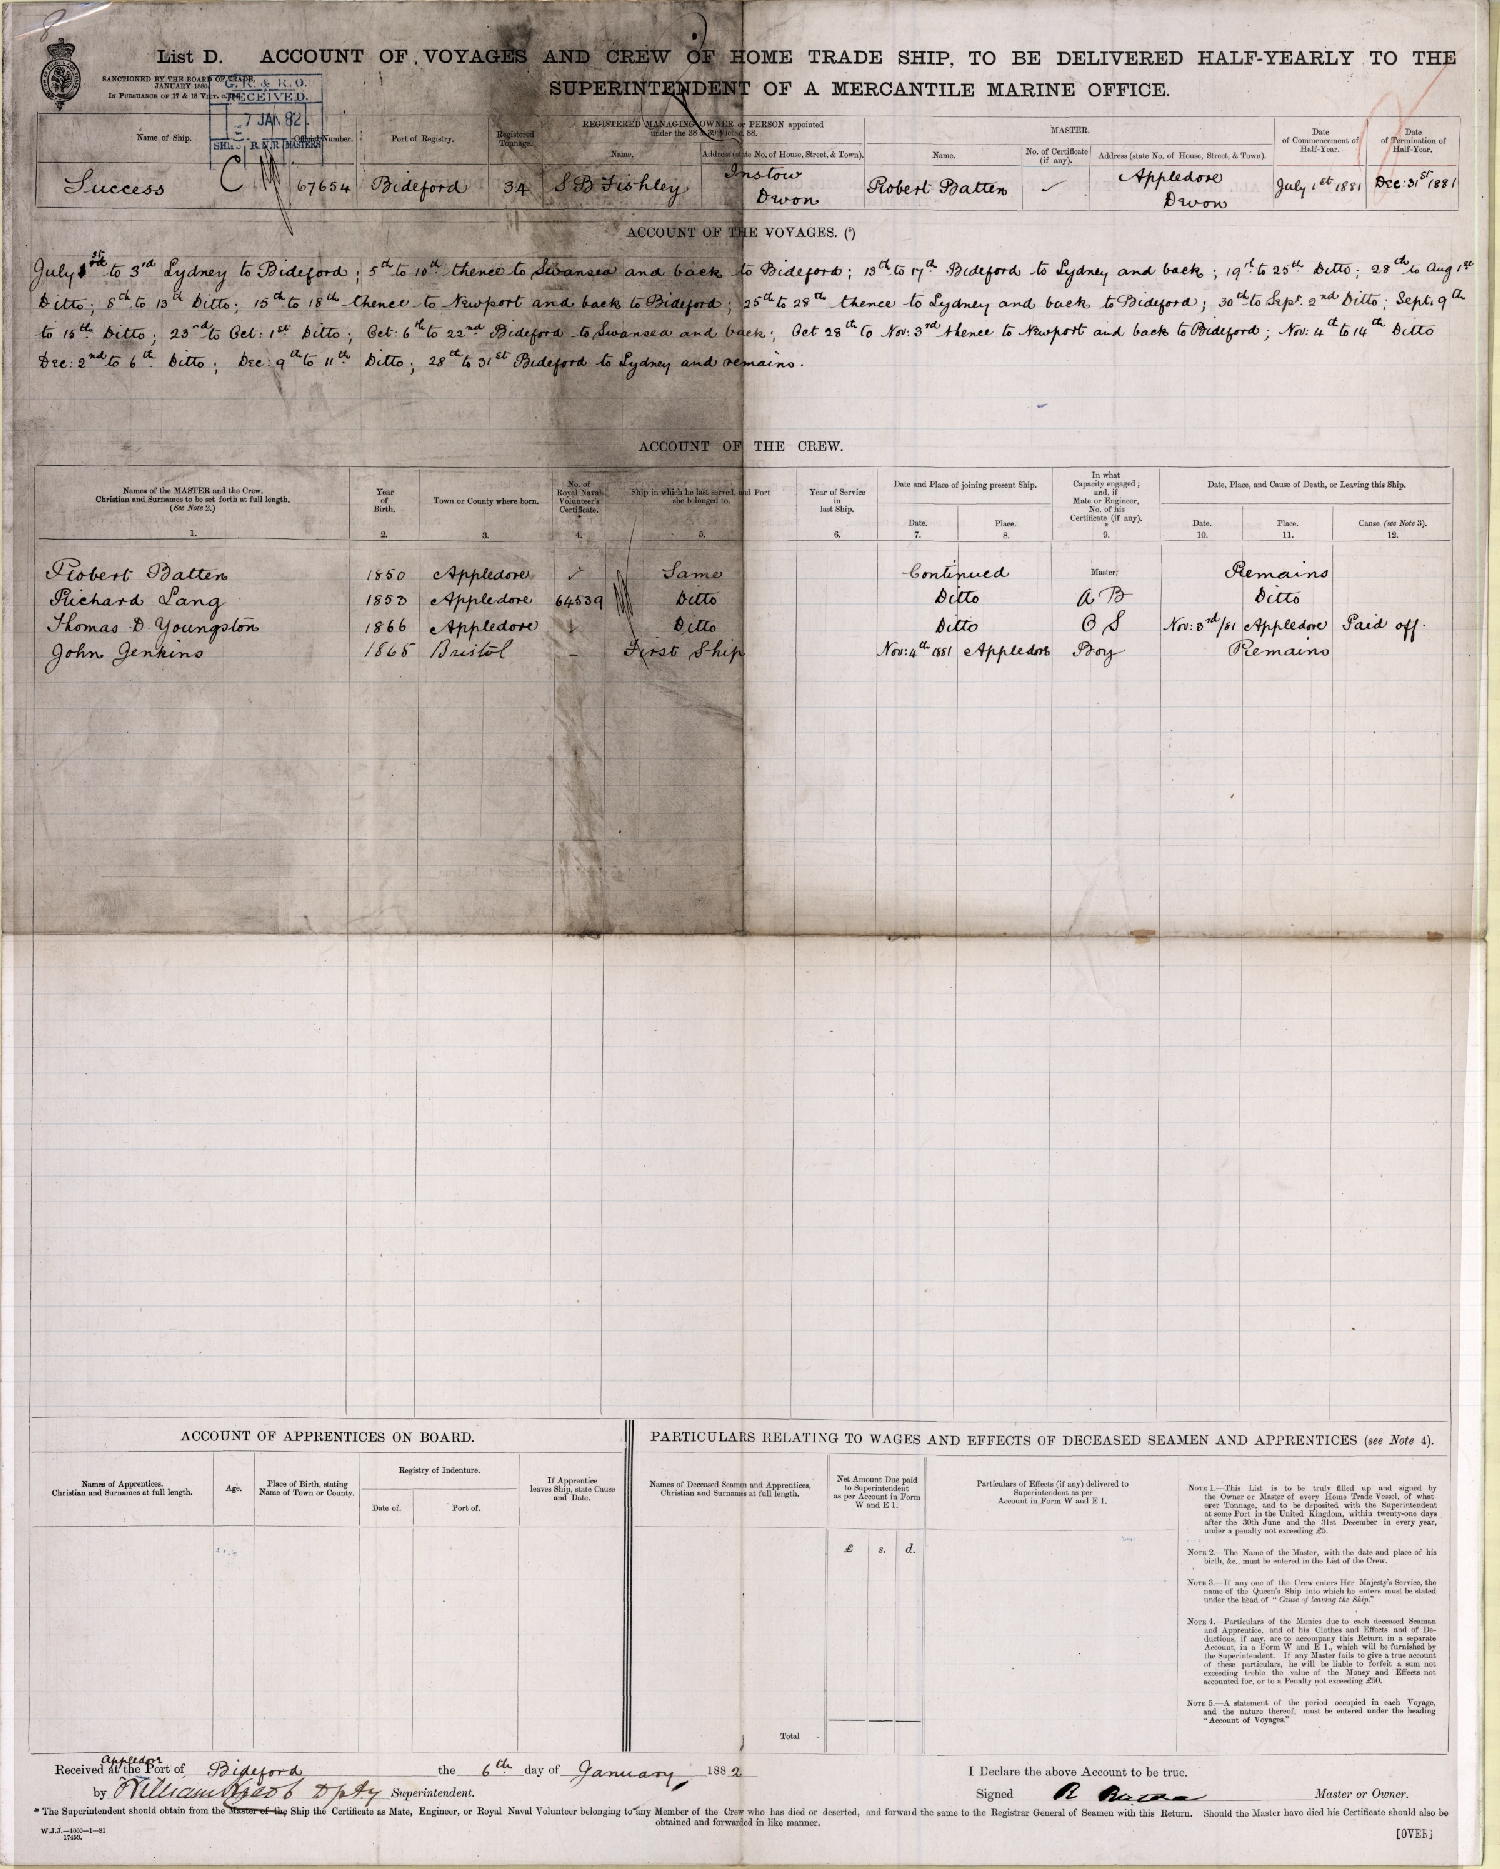 List D. ACCOUNT OF VOYAGES AND CREW OF HOME TRADE SHIP, TO BE DELIVERED HALF-YEARLY TO THE
SUPERINTENDENT OF A MERCANTILE MARINE OFFICE.
SANCTIONED BY THE BOARD OF TRADE,
JANUARY
IN PURSUANCE OF 17 & 18 VICT.
G. R. & R. O.
RECEIVED.
7 JAN 82
R.N.R. MASTERS
Name of Ship. Official Number. Port of Registry. Registered Tonnage. REGISTERED MANAGING OWNER or PERSON appointed MASTER. Date of Commencement of Half-Year. Date of Termination of Half-Year.
Name. Address (state No. of House, Street, & Town). Name. No. of Certificate (if any). Address (state No. of House, Street, & Town).
Success 67654 Bideford 34 S B Fishley Instow Devon Robert Batten Appledore Devon July 1st 1881 Dec: 31st 1881
ACCOUNT OF THE VOYAGES. (5)
July 1st to 3rd Lydney to Bideford; 5th to 10th thence to Swansea and back to Bideford; 13th to 17th Bideford to Lydney and back; 19th to 25th Ditto; 28th to Aug 1st
Ditto; 8th to 13th Ditto; 15th to 18th thence to Newport and back to Bideford; 25th to 28th thence to Lydney and back to Bideford; 30th to Sept. 2nd Ditto; Sept. 9th
to 15th Ditto; 23rd to Oct: 1st Ditto; Oct: 6th to 22nd Bideford to Swansea and back; Oct 28th to Nov: 3rd thence to Newport and back to Bideford; Nov: 4th to 14th Ditto
Dec: 2nd to 6th Ditto; Dec: 9th to 11th Ditto; 28th to 31st Bideford to Lydney and remains.
ACCOUNT OF THE CREW.
Names of the MASTER and the Crew. Christian and Surnames to be set forth at full length. (See Note 2.) Year of Birth. Town or County where born. No. of Royal Naval Volunteer's Certificate. Ship in which he last served, and Port she belonged to. Year of Service in last Ship. Date and Place of joining present Ship. In what Capacity engaged; and, if Mate or Engineer, No. of his Certificate (if any). Date, Place, and Cause of Death, or Leaving this Ship.
Date. Place. Date. Place. Cause (see Note 3).
1. 2. 3. 4. 5. 6. 7. 8. 9. 10. 11. 12.
Robert Batten 1850 Appledore Same Continued Master Remains
Richard Lang 1853 Appledore 64539 Ditto Ditto A B Ditto
Thomas D Youngston 1866 Appledore Ditto Ditto O S Nov: 3rd/81 Appledore Paid off.
John Jenkins 1865 Bristol – First Ship Nov: 4th 1881 Appledore Boy Remains
ACCOUNT OF APPRENTICES ON BOARD.
Names of Apprentices. Christian and Surnames at full length. Age. Place of Birth, stating Name of Town or County. Registry of Indenture. If Apprentice leaves Ship, state Cause and Date.
Date of. Port of.
PARTICULARS RELATING TO WAGES AND EFFECTS OF DECEASED SEAMEN AND APPRENTICES (see Note 4).
Names of Deceased Seamen and Apprentices, Christian and Surnames at full length. Net Amount Due paid to Superintendent as per Account in Form W and E 1. Particulars of Effects (if any) delivered to Superintendent as per Account in Form W and E 1.
£ s. d.
Total
NOTE 1.—This List is to be truly filled up and signed by
the Owner or Master of every Home Trade Vessel, of what-
ever Tonnage, and to be deposited with the Superintendent
at some Port in the United Kingdom, within twenty-one days
after the 30th June and the 31st December in every year,
under a penalty not exceeding £5.
NOTE 2.—The Name of the Master, with the date and place of his
birth, &c., must be entered in the List of the Crew.
NOTE 3.—If any one of the Crew enters Her Majesty's Service, the
name of the Queen's Ship into which he enters must be stated
under the head of "Cause of leaving the Ship."
NOTE 4.—Particulars of the Monies due to each deceased Seaman
and Apprentice, and of his Clothes and Effects and of De-
ductions, if any, are to accompany this Return in a separate
Account, in a Form W and E 1., which will be furnished by
the Superintendent. If any Master fails to give a true account
of these particulars, he will be liable to forfeit a sum not
exceeding treble the value of the Money and Effects not
accounted for, or to a Penalty not exceeding £50.
NOTE 5.—A statement of the period occupied in each Voyage,
and the nature thereof, must be entered under the heading
"Account of Voyages."
Appledor
Received at the Port of Bideford the 6th day of January, 1882
by William Dpty Superintendent.
I Declare the above Account to be true.
Signed R Batten Master or Owner.
* The Superintendent should obtain from the Master of the Ship the Certificate as Mate, Engineer, or Royal Naval Volunteer belonging to any Member of the Crew who has died or deserted, and forward the same to the Registrar General of Seamen with this Return. Should the Master have died his Certificate should also be
obtained and forwarded in like manner.
W.J.J.—1000—1—81
[OVER]